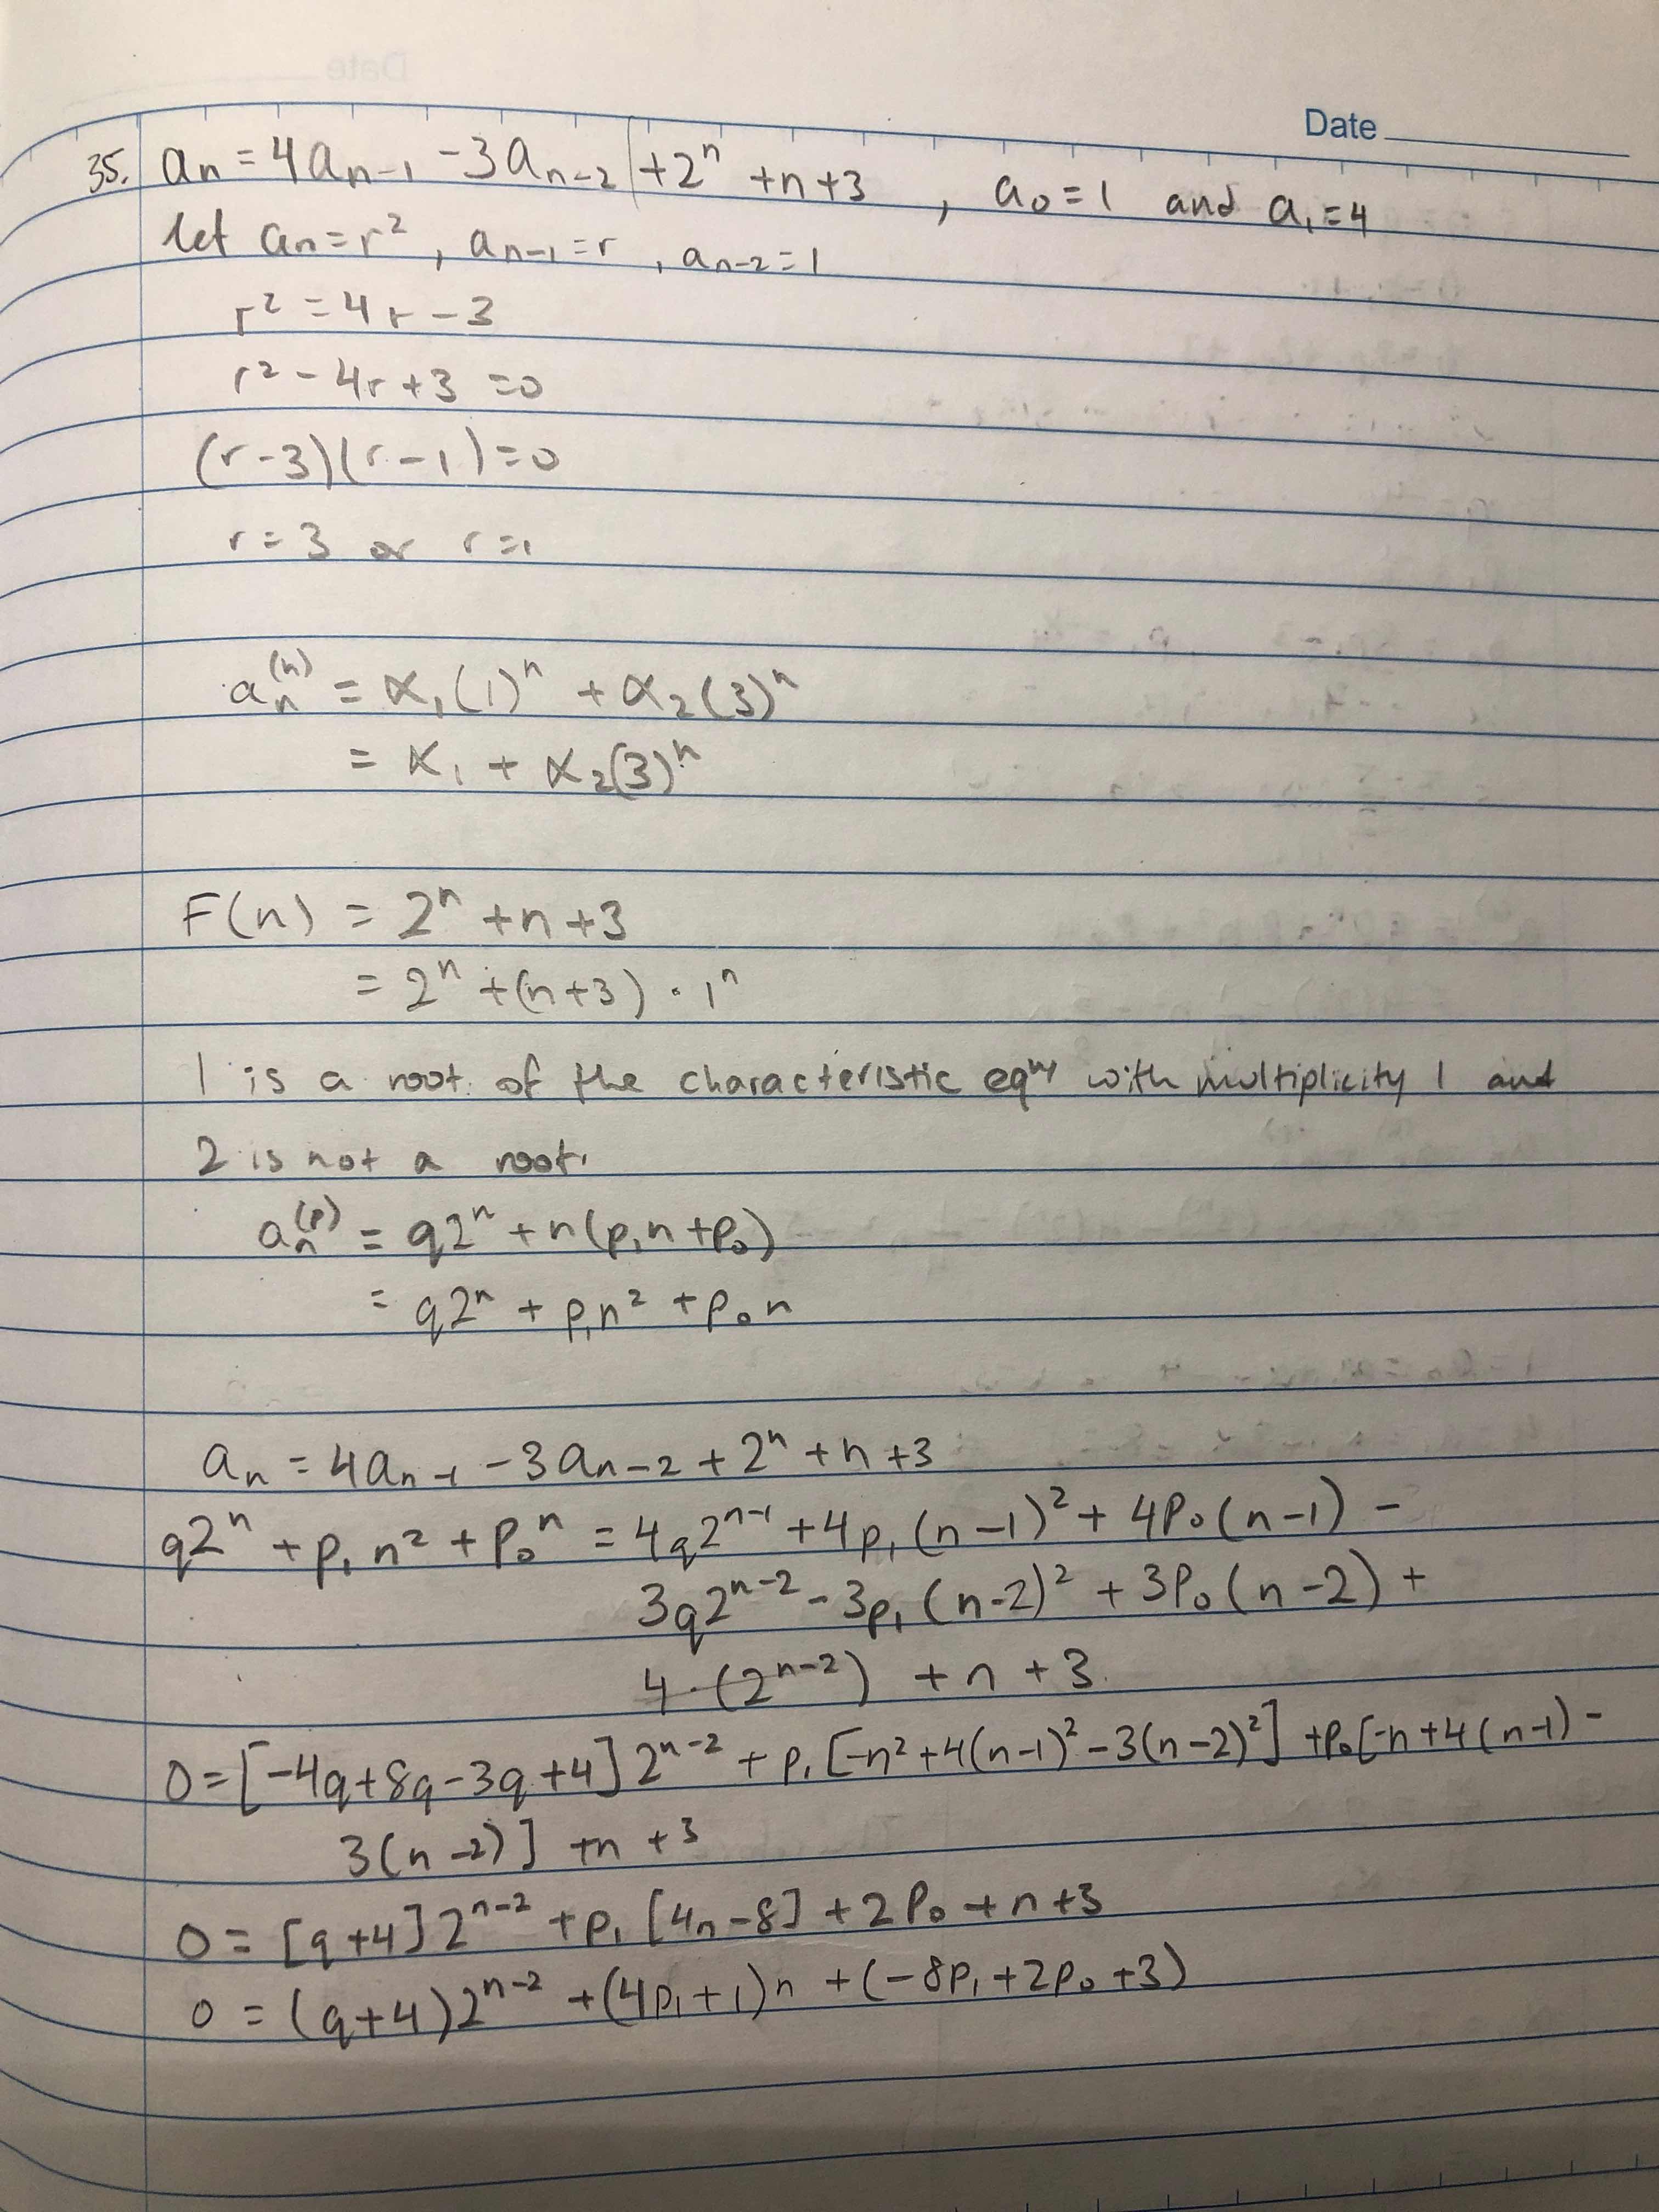 Date
35. aₙ = 4aₙ₋₁ - 3aₙ₋₂ + 2ⁿ + n + 3 , a₀ = 1 and a₁ = 4
let aₙ = r² , aₙ₋₁ = r , aₙ₋₂ = 1
r² = 4r - 3
r² - 4r + 3 = 0
(r - 3)(r - 1) = 0
r = 3 or r = 1
aₙ⁽ʰ⁾ = α₁(1)ⁿ + α₂(3)ⁿ
= α₁ + α₂(3)ⁿ
F(n) = 2ⁿ + n + 3
= 2ⁿ + (n + 3) · 1ⁿ
1 is a root of the characteristic eqⁿ with multiplicity 1 and
2 is not a root.
aₙ⁽ᵖ⁾ = q2ⁿ + n(p₁n + p₀)
= q2ⁿ + p₁n² + p₀n
aₙ = 4aₙ₋₁ - 3aₙ₋₂ + 2ⁿ + n + 3
q2ⁿ + p₁n² + p₀n = 4q2ⁿ⁻¹ + 4p₁(n-1)² + 4p₀(n-1) -
3q2ⁿ⁻² - 3p₁(n-2)² + 3p₀(n-2) +
4·(2ⁿ⁻²) + n + 3
0 = [-4q + 8q - 3q + 4]2ⁿ⁻² + p₁[-n² + 4(n-1)² - 3(n-2)²] + p₀[-n + 4(n-1) -
3(n-2)] + n + 3
0 = [q + 4]2ⁿ⁻² + p₁[4n - 8] + 2p₀ + n + 3
0 = (q + 4)2ⁿ⁻² + (4p₁ + 1)n + (-8p₁ + 2p₀ + 3)